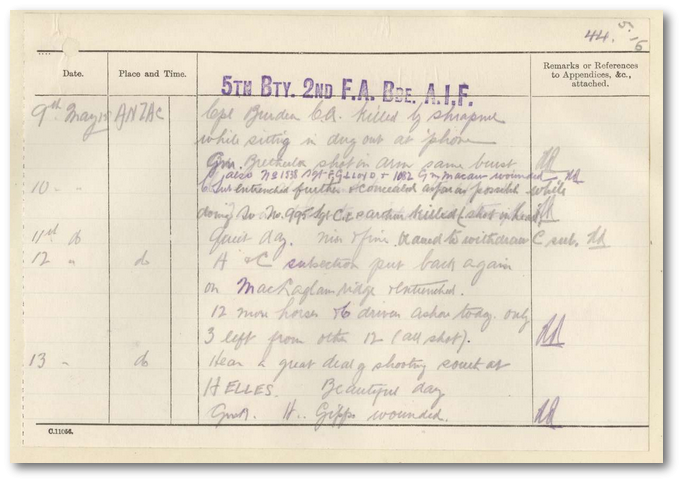 44. 5.15
Date. Place and Time. Remarks or References to Appendices, &c., attached.
5TH BTY. 2ND F.A. BDE. A.I.F.
9th May 15 ANZAC Cpl Burden CA. killed by shrapnel
while sitting in dug out at 'phone
Gnr. shot in arm same burst
also No 1538 Sgt F.G. LLOYD & 1082 Gnr wounded
10 " " C Sub entrenched further & concealed as far as possible while
doing so No. 995 Sgt killed (shot in head)
11th do Quiet day. to withdraw C sub.
12 " do A & C subsection put back again
on MacLaglan ridge & entrenched.
12 more horses & 6 drivers ashore today. only
3 left from other 12 (all shot).
13 " do Hear a great deal of shooting south at
HELLES. Beautiful day
Gnr. H. Gipps wounded.
C.11066.